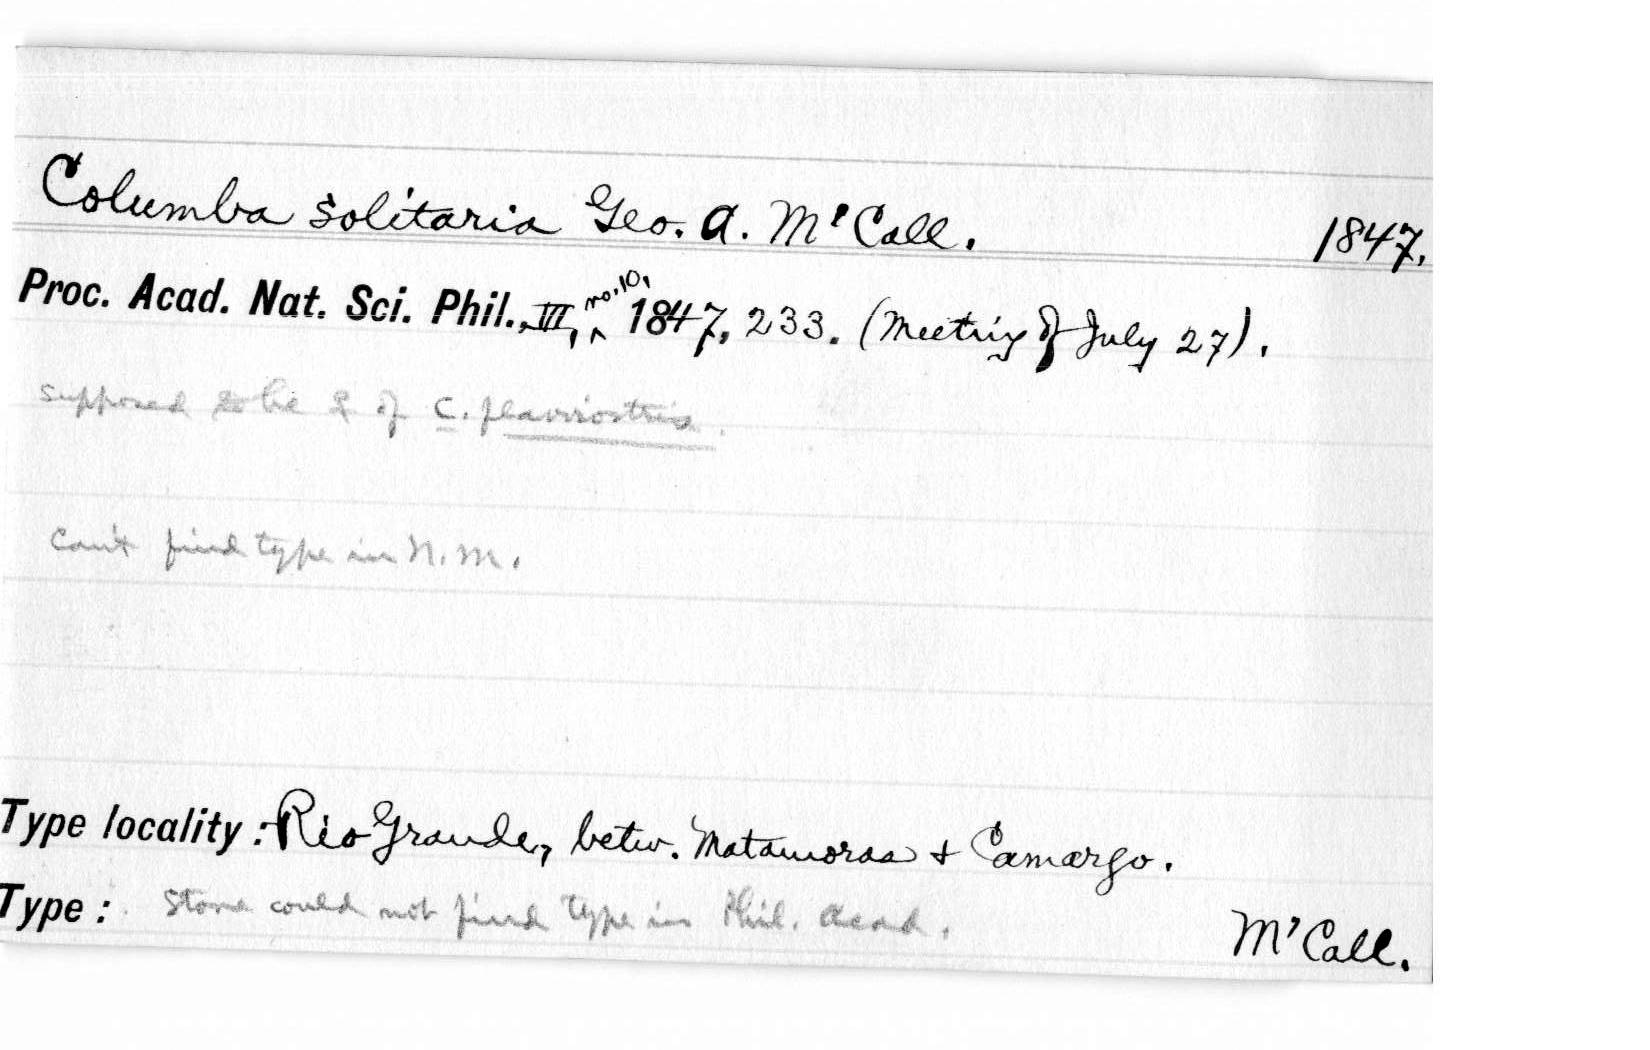 Columba solitaria Geo. A. M'Call. 1847.
Proc. Acad. Nat. Sci. Phil., III, no. 10, 1847, 233. (Meeting of July 27).
supposed to be ♀ of C. flavirostris.
Can't find type in N.M.
Type locality: Rio Grande, betw. Matamoras & Camargo.
Type: Stone could not find type in Phil. Acad. M'Call.